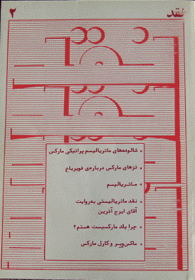 نقد
۲
شالوده‌های ماتریالیسم پراتیکی مارکس
تزهای مارکس درباره‌ی فویرباخ
ماتریالیسم
نقد ماتریالیستی به‌روایت
آقای ایرج آذرین
چرا یک مارکسیست هستم؟
ماکس‌وبر و کارل مارکس